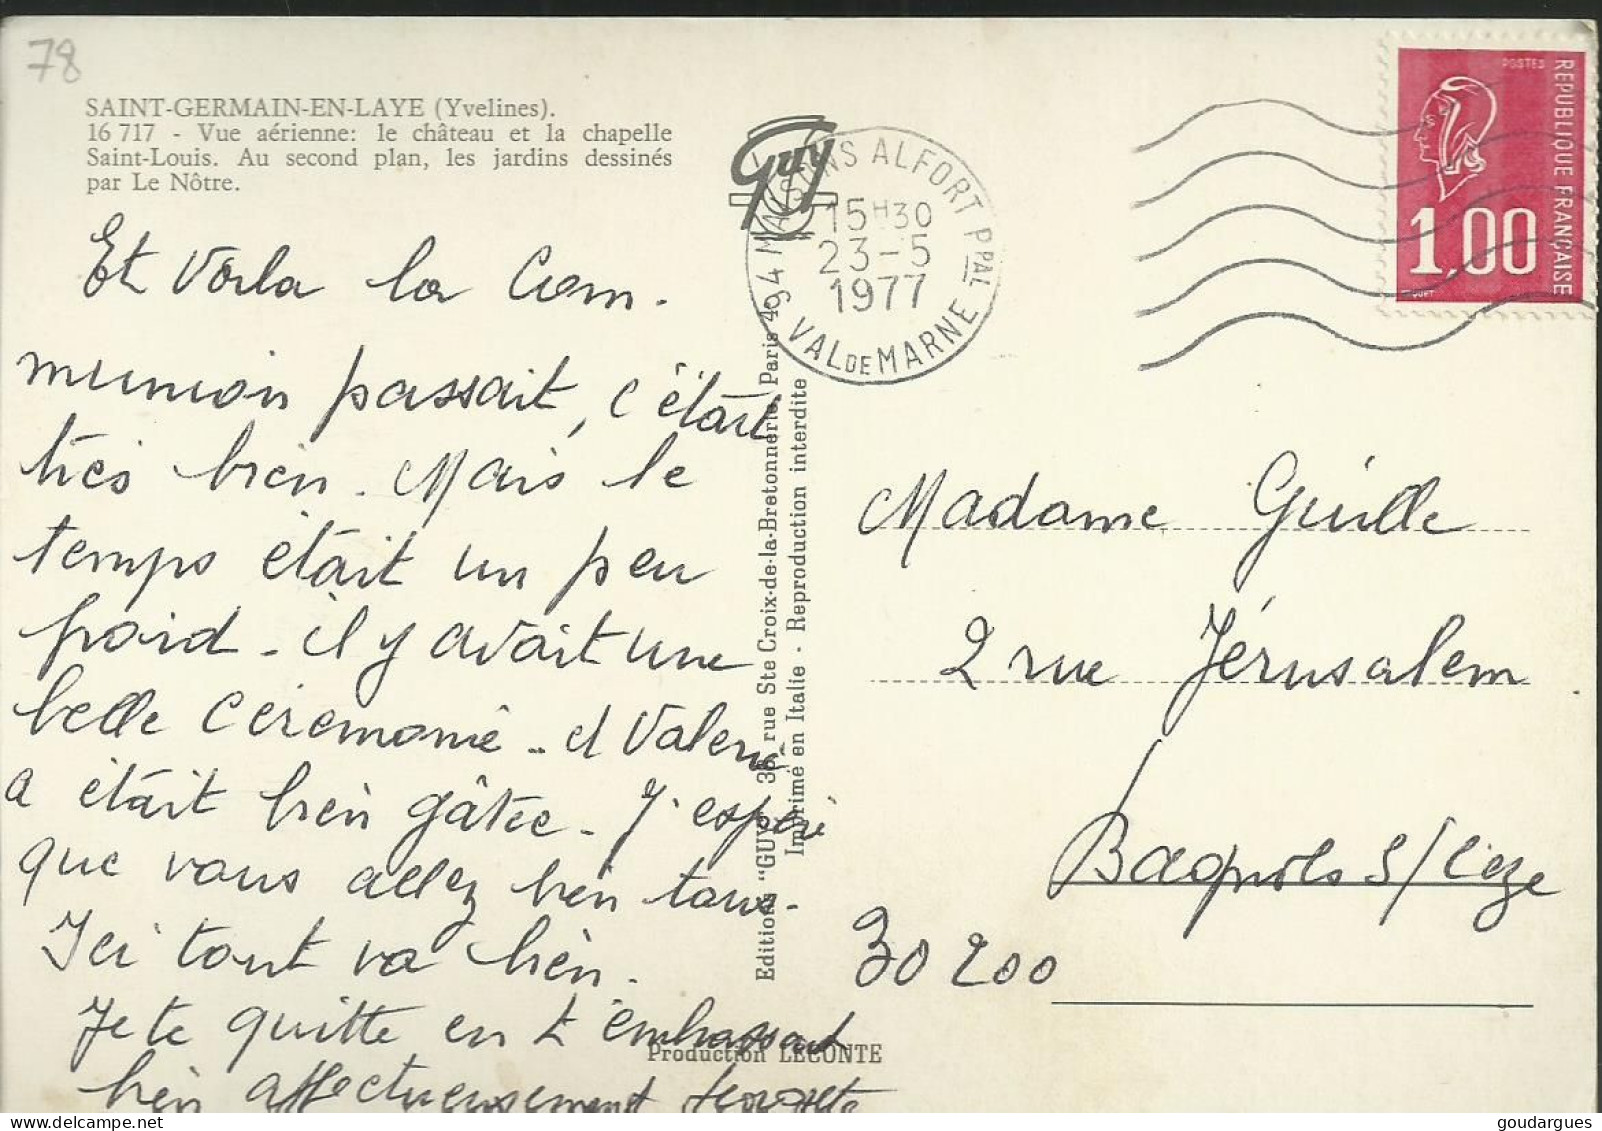 78
SAINT-GERMAIN-EN-LAYE (Yvelines).
16 717 - Vue aérienne: le château et la chapelle
Saint-Louis. Au second plan, les jardins dessinés
par Le Nôtre.
Guy
94 MAISONS ALFORT PPAL
15H30
23-5
1977
VAL DE MARNE
POSTES
REPUBLIQUE FRANÇAISE
1,00
Et Voila la Com.
munion passait, c'était
très bien. Mais le
temps était un peu
froid - il y avait une
belle cérémonie - et Valerie
a était bien gâtée - J'espère
que vous allez bien tous.
Ici tout va bien.
Je te quitte en t'embrassant
bien affectueusement
Editions "GUY" 38, rue Ste Croix-de-la-Bretonnerie, Paris 4e
Imprimé en Italie - Reproduction interdite
Production LECONTE
Madame Guille
2 rue Jérusalem
Bagnols s/ Cèze
30 200
goudargues